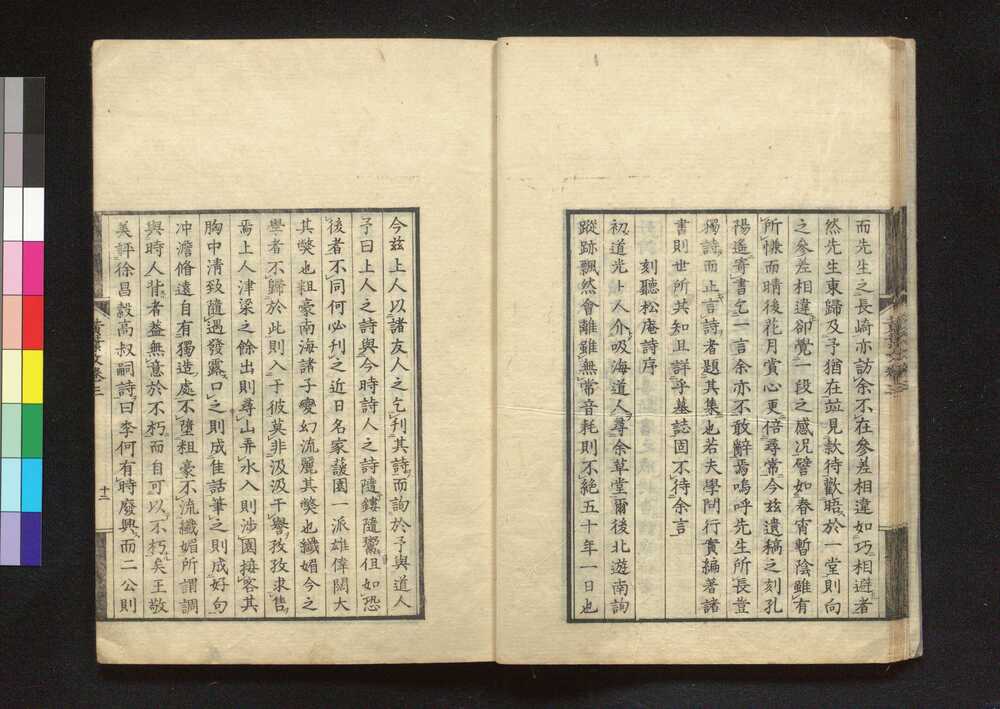 而先生之長崎亦訪余不在參差相違如巧相避者
然先生東歸及予猶在並見款待歡晤於一堂則向
之參差相違卻覺一段之感况譬如春宵暫陰雖有
所慊而晴後花月賞心更倍尋常今茲遺稿之刻孔
陽遙寄書乞一言余亦不敢辭焉嗚呼先生所長豈
獨詩而止言詩者題其集也若夫學問行實編著諸
書則世所共知且詳乎墓誌固不待余言
刻聽松庵詩序
初道光上人介吸海道人尋余草堂爾後北遊南詢
蹤跡飄然會離雖無常音耗則不絕五十年一日也
今茲上人以諸友人之乞刊其詩而詢於予與道人
予曰上人之詩與今時詩人之詩隨鏤隨鬻但如恐
後者不同何必刊之近日名家蘐園一派雄偉閎大
其獘也粗豪南海諸子變幻流麗其獘也纖媚今之
學者不歸於此則入于彼莫非汲汲干譽孜孜求售
焉上人津梁之餘出則尋山弄水入則涉園接客其
胸中清致隨遇發露口之則成佳話筆之則成好句
冲澹脩遠自有獨造處不墮粗豪不流纖媚所謂調
與時人背者蓋無意於不朽而自可以不朽矣王敬
美評徐昌穀高叔嗣詩曰李何有時廢興而二公則
黃葉文卷三
十三